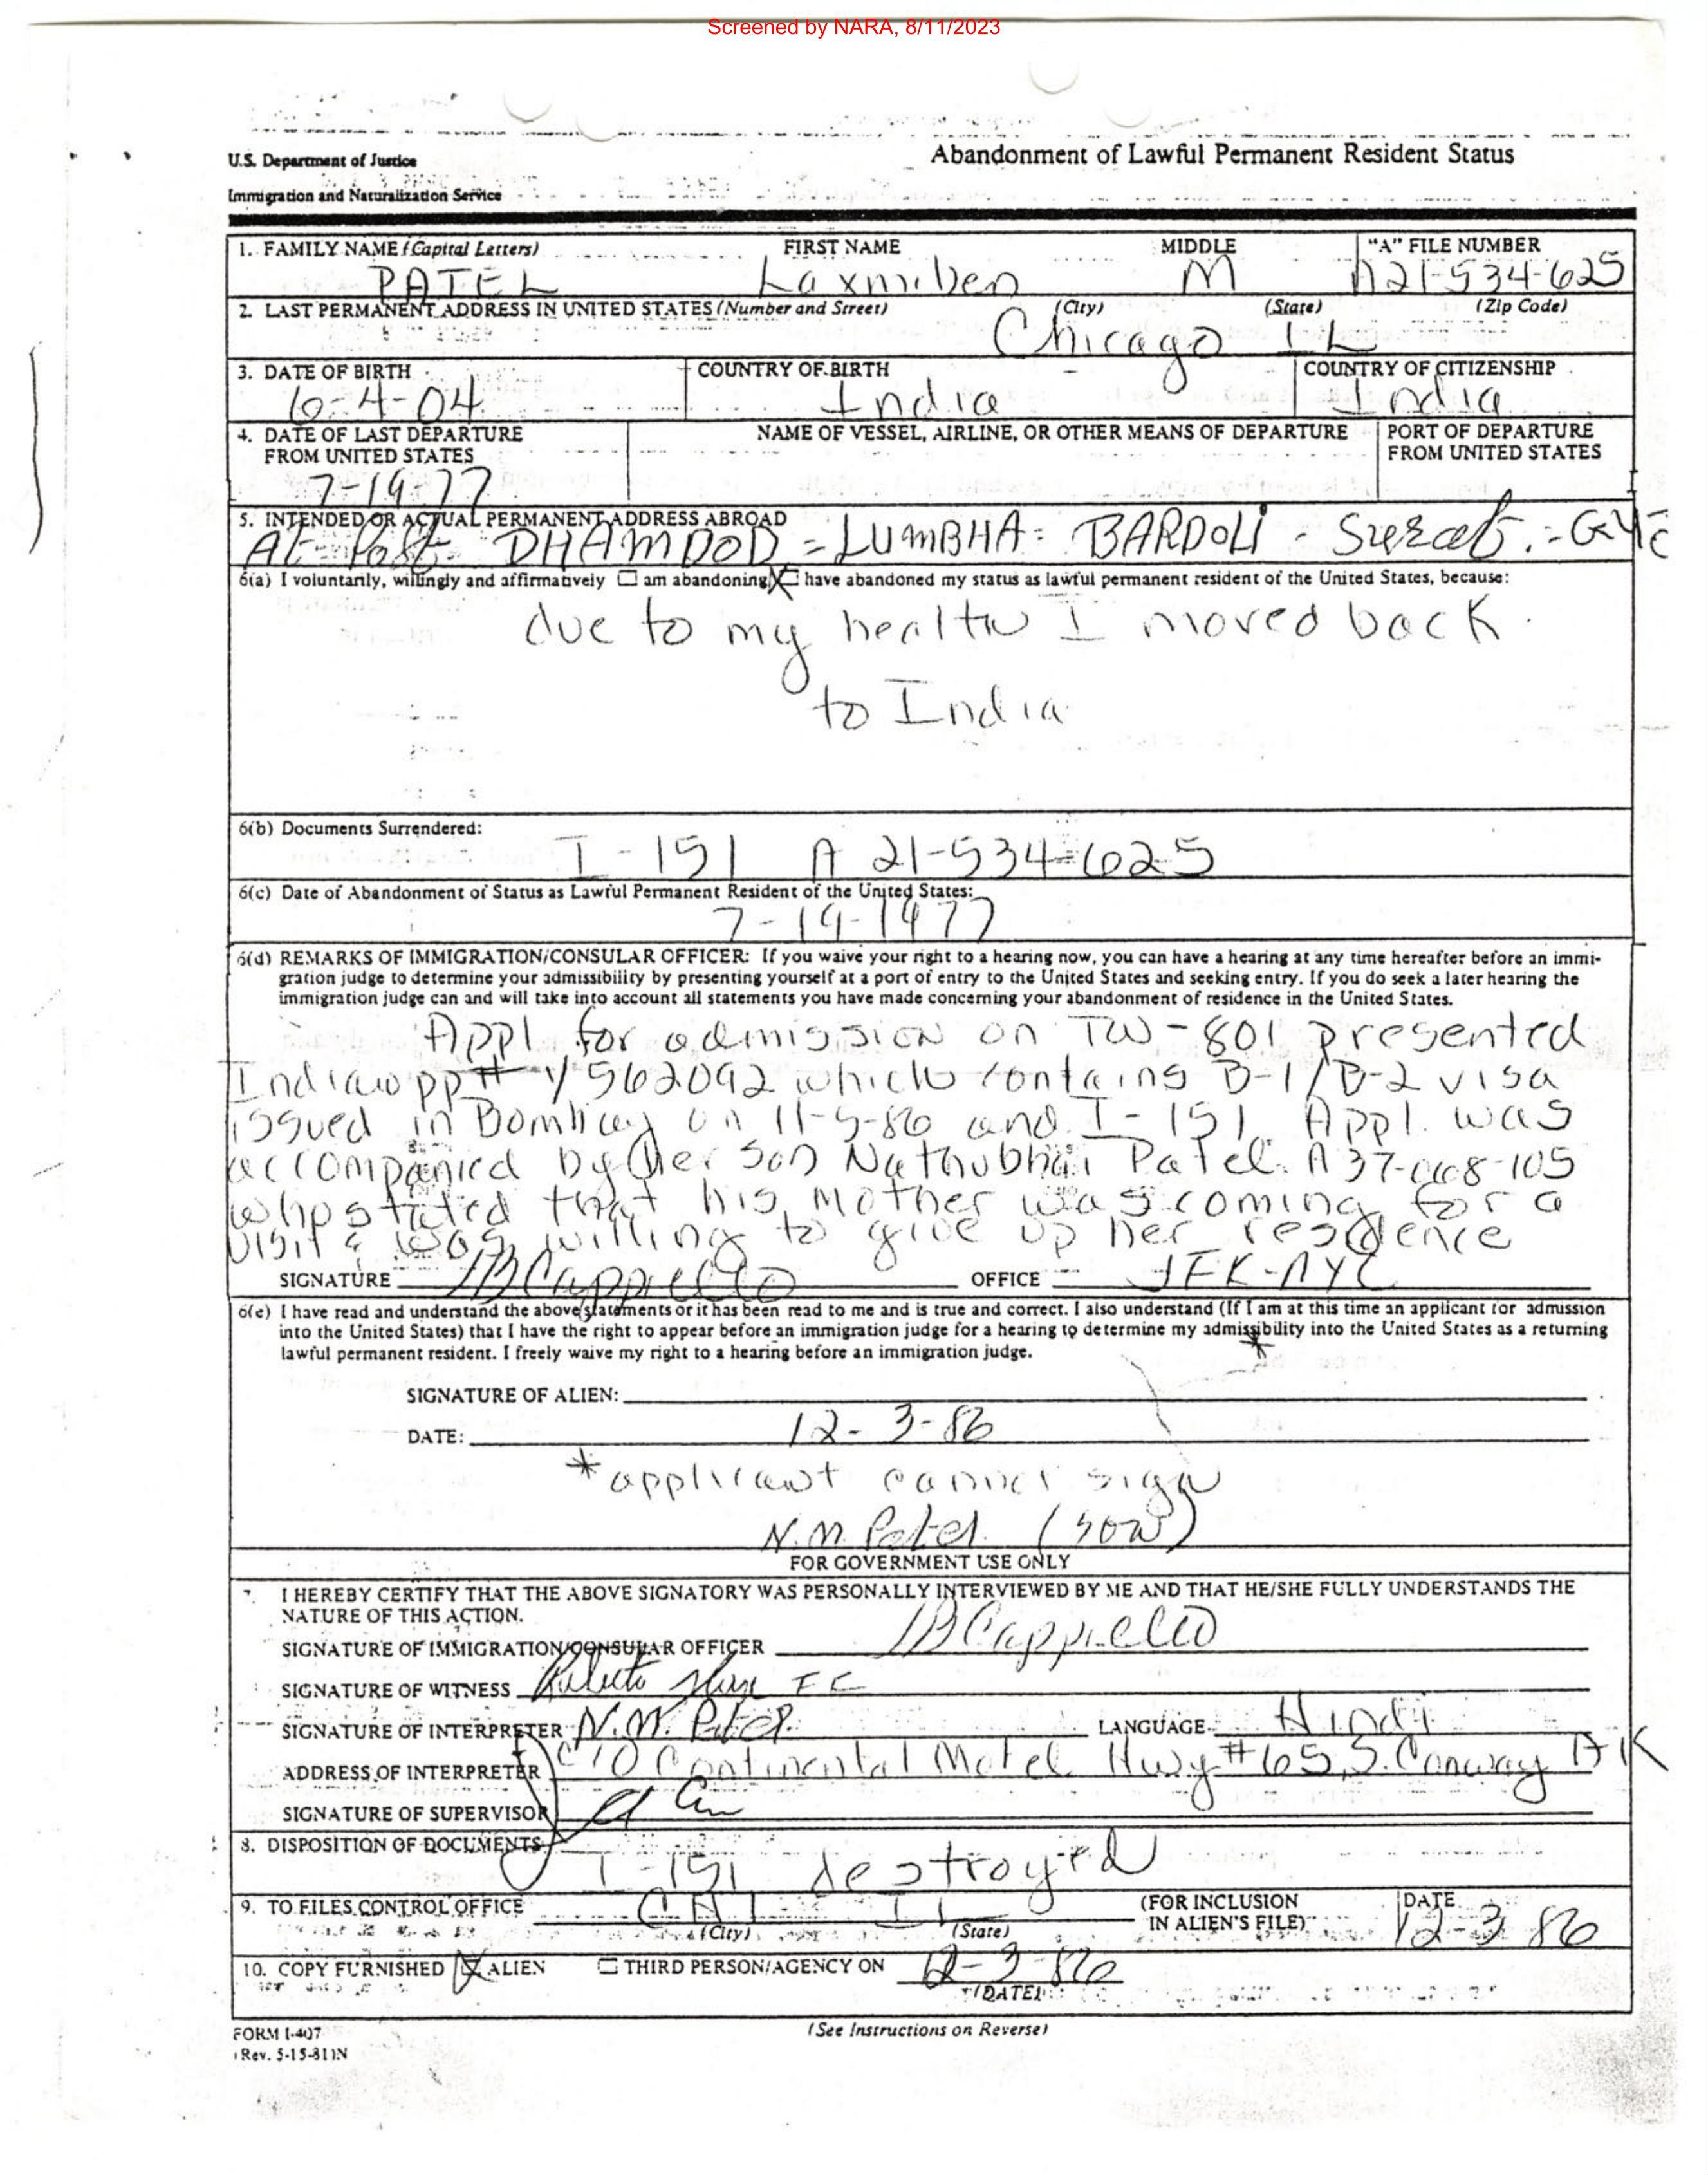 Screened by NARA, 8/11/2023
U.S. Department of Justice
Immigration and Naturalization Service
Abandonment of Lawful Permanent Resident Status
1. FAMILY NAME (Capital Letters) FIRST NAME MIDDLE "A" FILE NUMBER
PATEL Laxmiben M A21-534-625
2. LAST PERMANENT ADDRESS IN UNITED STATES (Number and Street) (City) (State) (Zip Code)
Chicago IL
3. DATE OF BIRTH COUNTRY OF BIRTH COUNTRY OF CITIZENSHIP
6-4-04 India India
4. DATE OF LAST DEPARTURE FROM UNITED STATES NAME OF VESSEL, AIRLINE, OR OTHER MEANS OF DEPARTURE PORT OF DEPARTURE FROM UNITED STATES
7-19-77
5. INTENDED OR ACTUAL PERMANENT ADDRESS ABROAD
At Post DHAMDOD = LUMBHA = BARDOLI - Surat. =
6(a) I voluntarily, willingly and affirmatively ☐ am abandoning ☒ have abandoned my status as lawful permanent resident of the United States, because:
due to my health I moved back
to India
6(b) Documents Surrendered:
I-151 A 21-534-625
6(c) Date of Abandonment of Status as Lawful Permanent Resident of the United States:
7-19-1977
6(d) REMARKS OF IMMIGRATION/CONSULAR OFFICER: If you waive your right to a hearing now, you can have a hearing at any time hereafter before an immi-
gration judge to determine your admissibility by presenting yourself at a port of entry to the United States and seeking entry. If you do seek a later hearing the
immigration judge can and will take into account all statements you have made concerning your abandonment of residence in the United States.
Appl. for admission on TW-801 presented
Indian pp# Y562092 which contains B-1/B-2 visa
issued in Bombay on 11-5-86 and I-151. Appl. was
accompanied by her son Nathubhai Patel A37-068-105
who stated that his mother was coming for a
visit & was willing to give up her residence
SIGNATURE Cappiello OFFICE JFK-NYC
6(e) I have read and understand the above statements or it has been read to me and is true and correct. I also understand (If I am at this time an applicant for admission
into the United States) that I have the right to appear before an immigration judge for a hearing to determine my admissibility into the United States as a returning
lawful permanent resident. I freely waive my right to a hearing before an immigration judge. *
SIGNATURE OF ALIEN:
DATE: 12-3-86
*applicant cannot sign
N.M. Patel. (son)
FOR GOVERNMENT USE ONLY
7. I HEREBY CERTIFY THAT THE ABOVE SIGNATORY WAS PERSONALLY INTERVIEWED BY ME AND THAT HE/SHE FULLY UNDERSTANDS THE
NATURE OF THIS ACTION.
SIGNATURE OF IMMIGRATION/CONSULAR OFFICER Cappiello
SIGNATURE OF WITNESS
SIGNATURE OF INTERPRETER N.M. Patel. LANGUAGE Hindi
ADDRESS OF INTERPRETER C/O Continental Motel Hwy #65, S. Conway AK
SIGNATURE OF SUPERVISOR
8. DISPOSITION OF DOCUMENTS
I-151 destroyed
9. TO FILES CONTROL OFFICE CHI IL (FOR INCLUSION IN ALIEN'S FILE) DATE
(City) (State) 12-3-86
10. COPY FURNISHED ☒ ALIEN ☐ THIRD PERSON/AGENCY ON 12-3-86
(DATE)
FORM I-407
(Rev. 5-15-81)N
(See Instructions on Reverse)